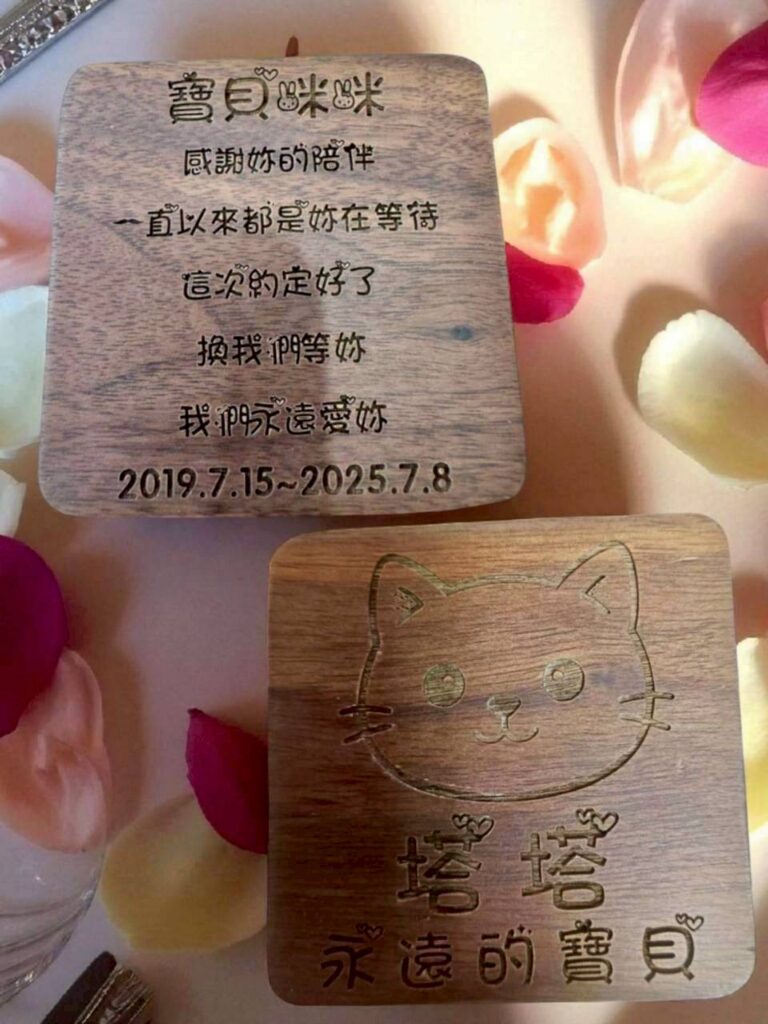 寶貝咪咪
感謝妳的陪伴
一直以來都是妳在等待
這次約定好了
換我們等妳
我們永遠愛妳
2019.7.15~2025.7.8
塔塔
永遠的寶貝